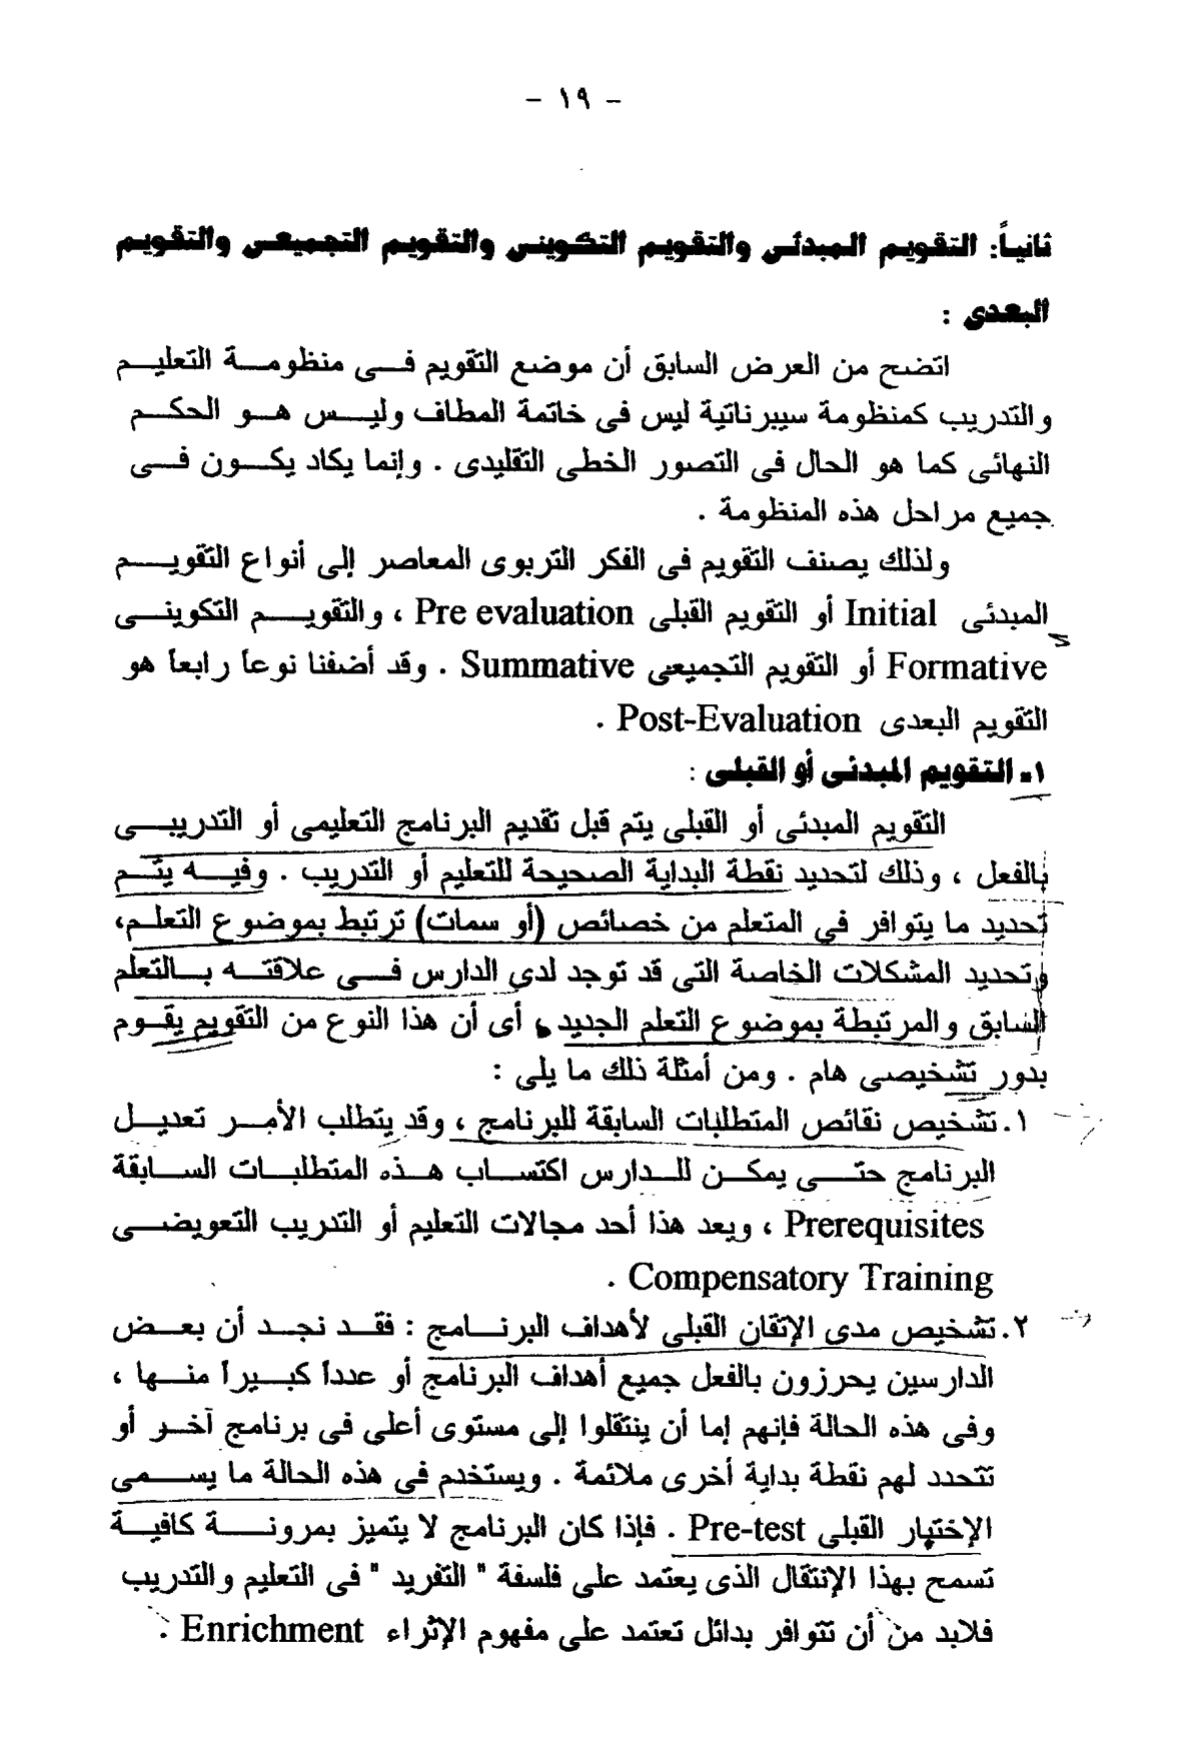 - ١٩ -
ثانياً: التقويم المبدئى والتقويم التكوينى والتقويم التجميعى والتقويم
البعدى :
اتضح من العرض السابق أن موضع التقويم فى منظومة التعليم
والتدريب كمنظومة سيبرناتية ليس فى خاتمة المطاف وليس هو الحكم
النهائى كما هو الحال فى التصور الخطى التقليدى . وإنما يكاد يكون فى
جميع مراحل هذه المنظومة .
ولذلك يصنف التقويم فى الفكر التربوى المعاصر إلى أنواع التقويم
المبدئى Initial أو التقويم القبلى Pre evaluation ، والتقويم التكوينى
Formative أو التقويم التجميعى Summative . وقد أضفنا نوعاً رابعاً هو
التقويم البعدى Post-Evaluation .
١ـ التقويم المبدئى أو القبلى :
التقويم المبدئى أو القبلى يتم قبل تقديم البرنامج التعليمى أو التدريبى
بالفعل ، وذلك لتحديد نقطة البداية الصحيحة للتعليم أو التدريب . وفيه يتم
تحديد ما يتوافر في المتعلم من خصائص (أو سمات) ترتبط بموضوع التعلم،
وتحديد المشكلات الخاصة التى قد توجد لدى الدارس فى علاقته بالتعلم
السابق والمرتبطة بموضوع التعلم الجديد، أى أن هذا النوع من التقويم يقوم
بدور تشخيصى هام . ومن أمثلة ذلك ما يلى :
١. تشخيص نقائص المتطلبات السابقة للبرنامج ، وقد يتطلب الأمر تعديل
البرنامج حتى يمكن للدارس اكتساب هذه المتطلبات السابقة
Prerequisites ، ويعد هذا أحد مجالات التعليم أو التدريب التعويضى
Compensatory Training .
٢. تشخيص مدى الإتقان القبلى لأهداف البرنامج : فقد نجد أن بعض
الدارسين يحرزون بالفعل جميع أهداف البرنامج أو عدداً كبيراً منها ،
وفى هذه الحالة فإنهم إما أن ينتقلوا إلى مستوى أعلى فى برنامج آخر أو
تتحدد لهم نقطة بداية أخرى ملائمة . ويستخدم في هذه الحالة ما يسمى
الإختبار القبلى Pre-test . فإذا كان البرنامج لا يتميز بمرونة كافية
تسمح بهذا الإنتقال الذى يعتمد على فلسفة " التفريد " فى التعليم والتدريب
فلابد من أن تتوافر بدائل تعتمد على مفهوم الإثراء Enrichment .